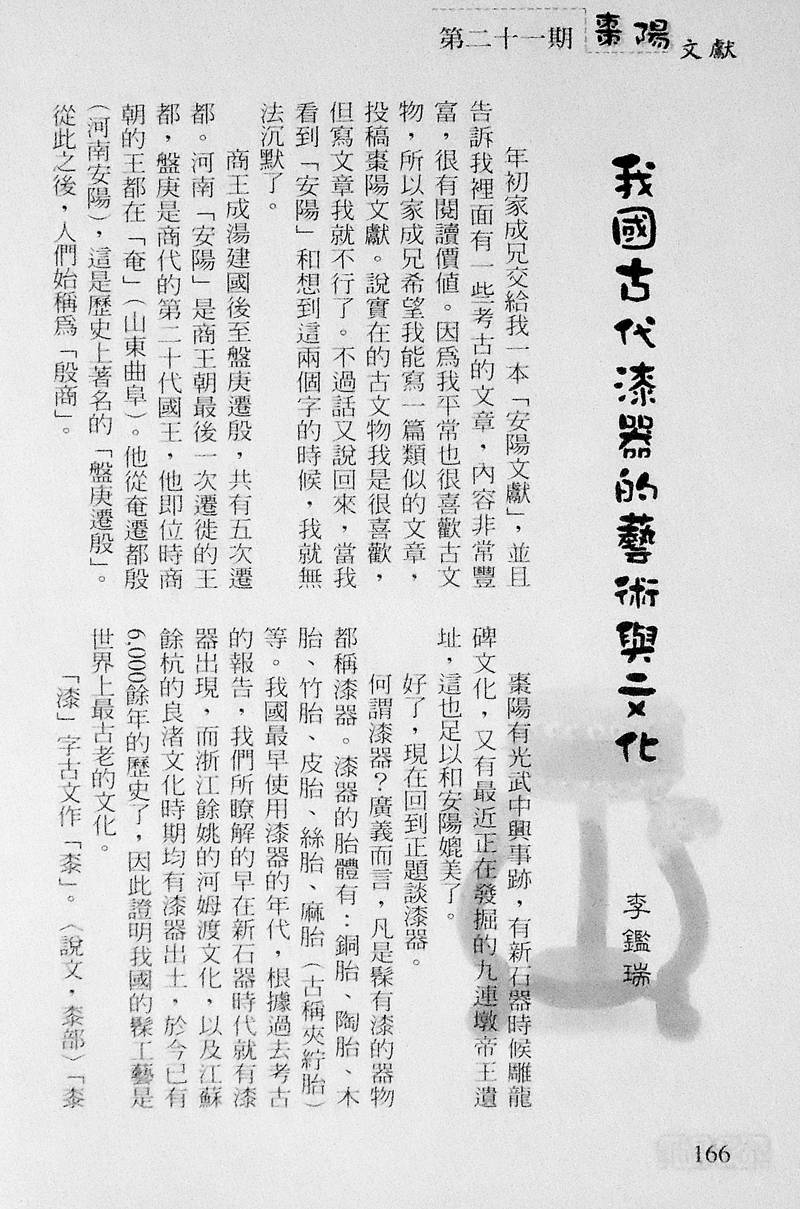 第二十一期 棗陽文獻
我國古代漆器的藝術與文化
李鑑瑞
年初家成兄交給我一本「安陽文獻」,並且
告訴我裡面有一些考古的文章,內容非常豐
富,很有閱讀價值。因為我平常也很喜歡古文
物,所以家成兄希望我能寫一篇類似的文章,
投稿棗陽文獻。說實在的古文物我是很喜歡,
但寫文章我就不行了。不過話又說回來,當我
看到「安陽」和想到這兩個字的時候,我就無
法沉默了。
商王成湯建國後至盤庚遷殷,共有五次遷
都。河南「安陽」是商王朝最後一次遷徙的王
都,盤庚是商代的第二十代國王,他即位時商
朝的王都在「奄」(山東曲阜)。他從奄遷都殷
(河南安陽),這是歷史上著名的「盤庚遷殷」。
從此之後,人們始稱為「殷商」。
棗陽有光武中興事跡,有新石器時候雕龍
碑文化,又有最近正在發掘的九連墩帝王遺
址,這也足以和安陽媲美了。
好了,現在回到正題談漆器。
何謂漆器?廣義而言,凡是髹有漆的器物
都稱漆器。漆器的胎體有:銅胎、陶胎、木
胎、竹胎、皮胎、絲胎、麻胎(古稱夾紵胎)
等。我國最早使用漆器的年代,根據過去考古
的報告,我們所瞭解的早在新石器時代就有漆
器出現,而浙江餘姚的河姆渡文化,以及江蘇
餘杭的良渚文化時期均有漆器出土,於今已有
6,000餘年的歷史了,因此證明我國的髹工藝是
世界上最古老的文化。
「漆」字古文作「桼」。〈說文,桼部〉「桼
166